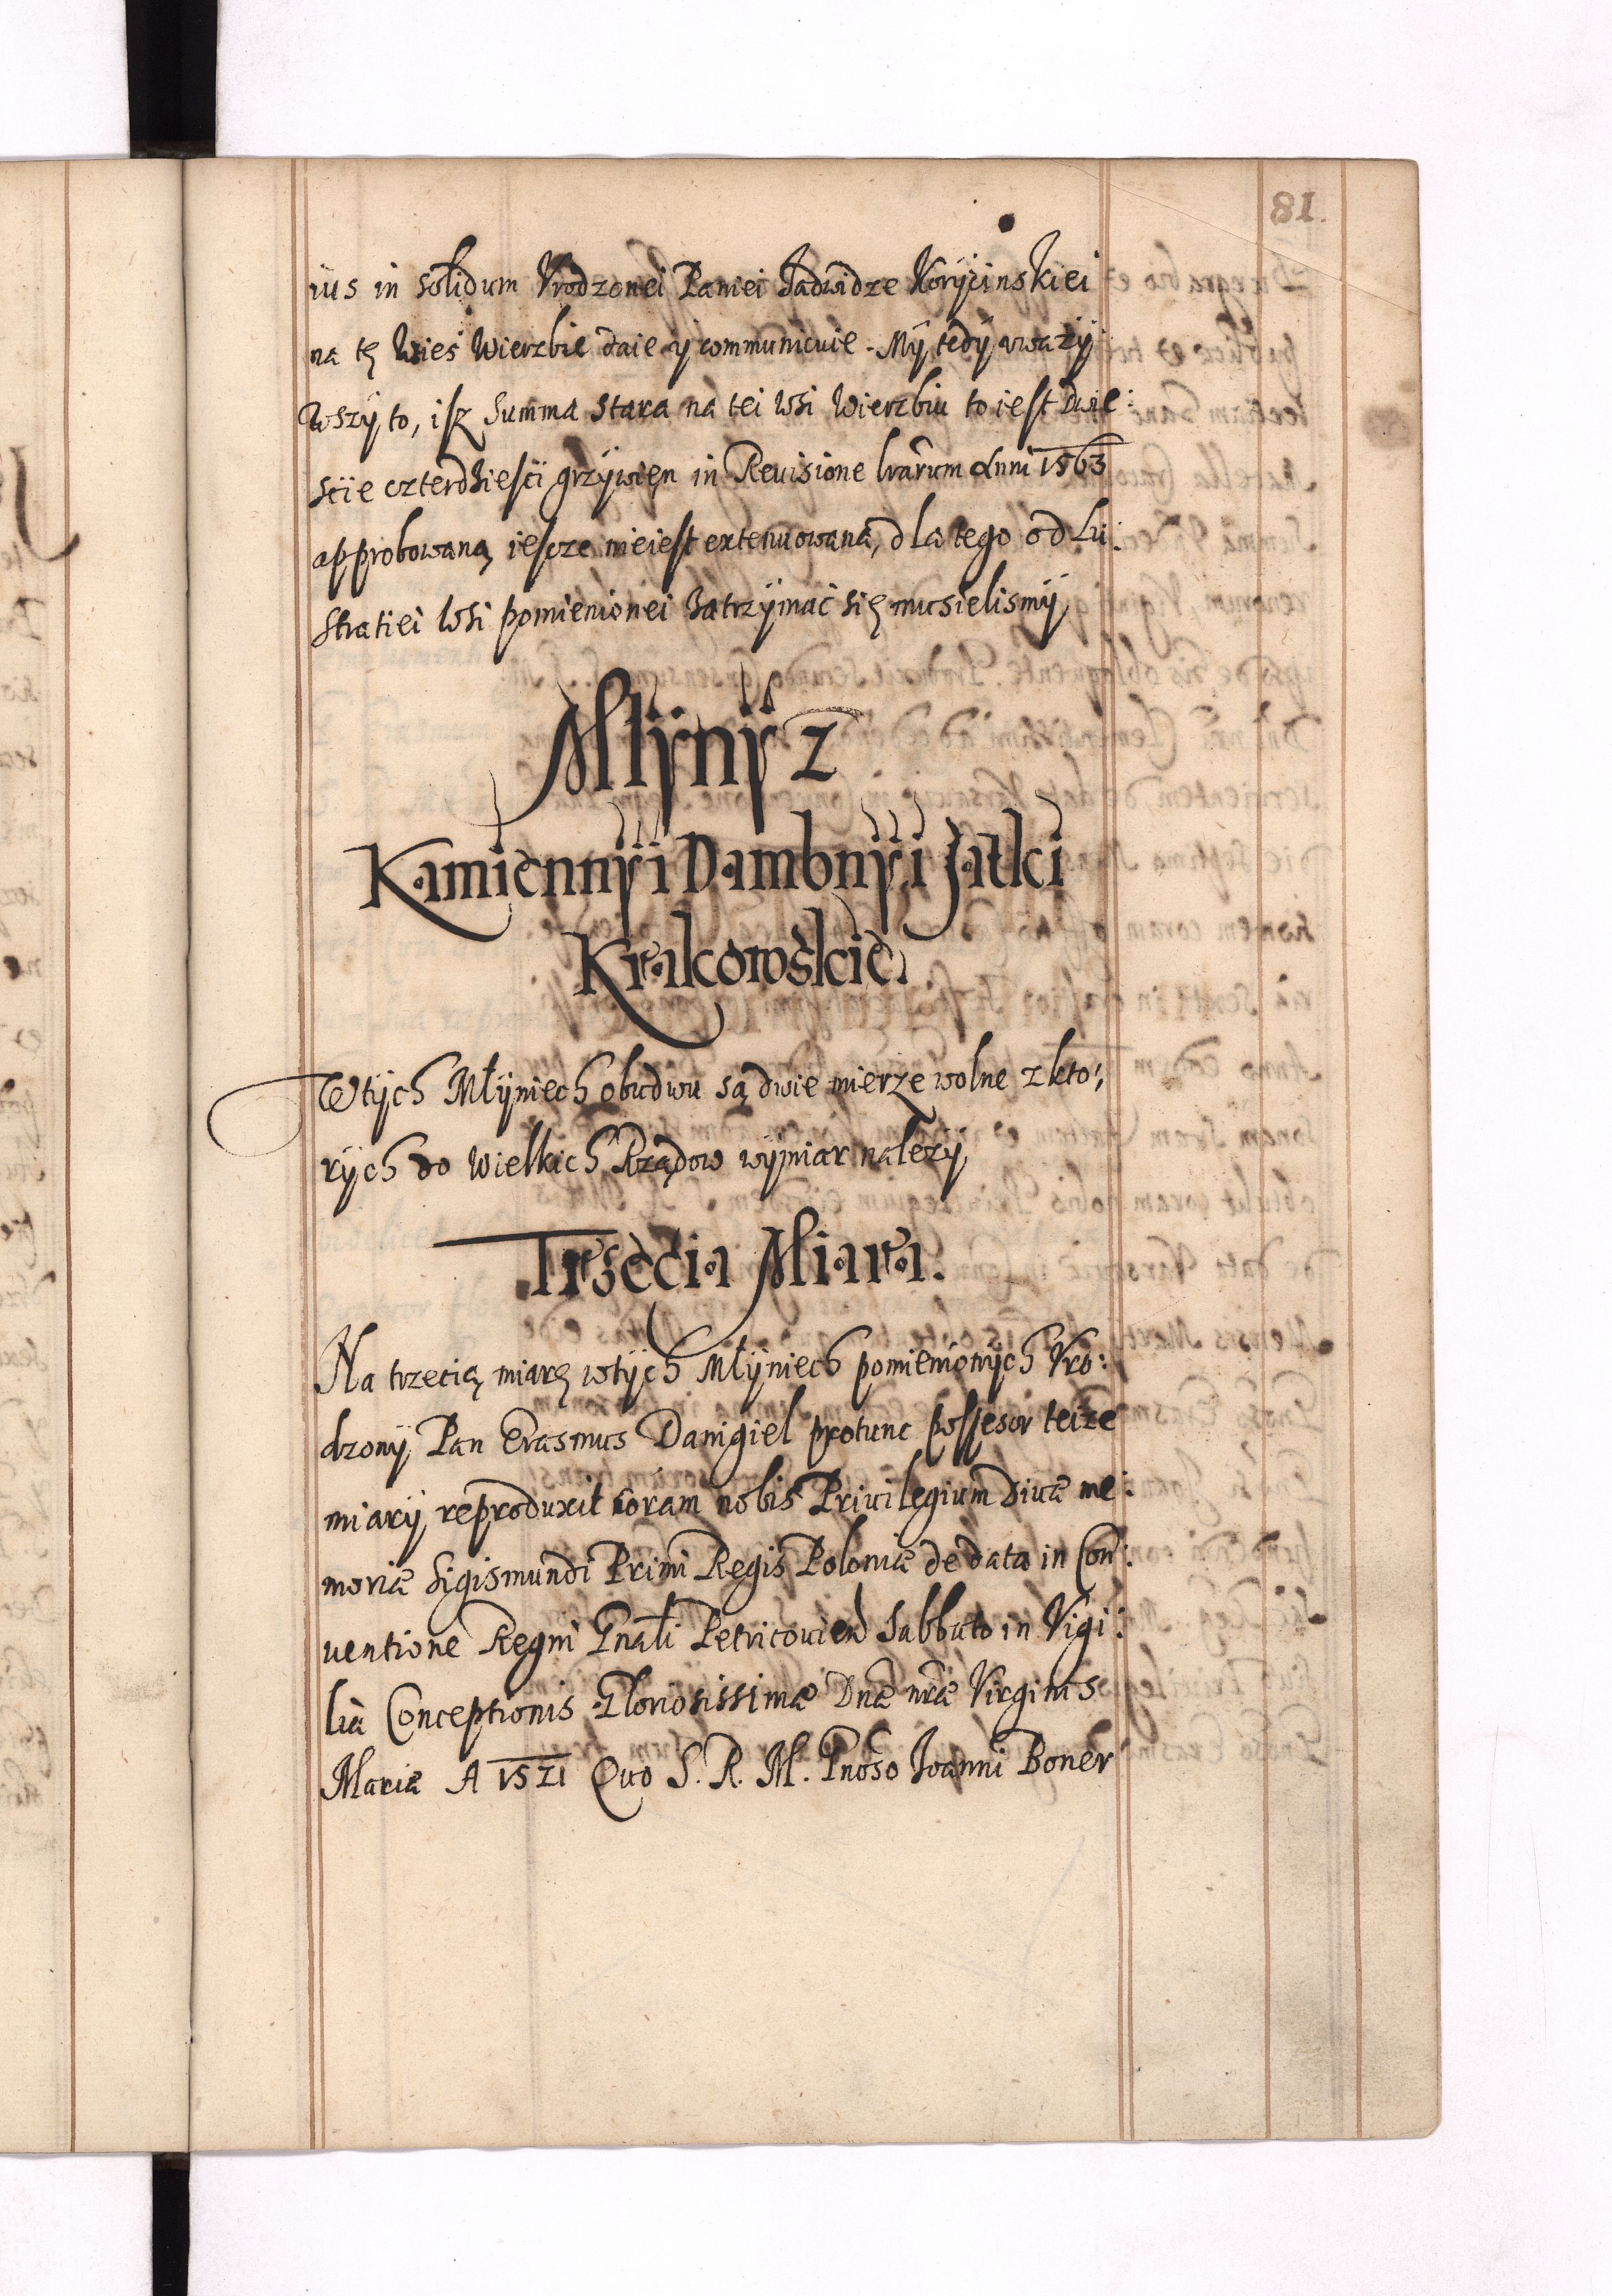 81.
ius in solidum Vrodzonei Paniei Jadwidze Korÿcinskiei
na tę Wieś Wierzbie daie ÿ communicuie. Mÿ tedÿ vwazÿ
wszÿ to, isz Summa stara na tei Wsi Wierzbiu to iest Dwie:
sćie czterdzieśći grzÿwięn in Reuisione lrarum Anni 1563
approbowana, iescze nieiest extenuowana, dla tego od Lu:
stratiei Wsi pomienionei Zatrzÿmać się musielismÿ
Mlÿnÿ z
Kamiennÿ i Dambnÿ i Jatki
Krakowskie.
W tÿch Młÿniech obudwu są dwie mierze wolne z kto:
rÿch do Wielkich Rządow wÿmiar nalezÿ
Trzecia Miara.
Na trzecią miarę w tÿch Młÿniech pomienionÿch Vro:
dzonÿ Pan Erasmus Danigiel protunc possesor teize
miarÿ reproduxit coram nobis Priuilegium Diuæ me:
moriæ Sigismundi Primi Regis Poloniæ de data in Con:
uentione Regni Gnali Petricouien Sabbato in Vigi:
lia Conceptionis Gloriosissimæ Dnæ nræ Virginis
Mariæ A 1521 Quo S. R. M. Gnoso Joanni Boner